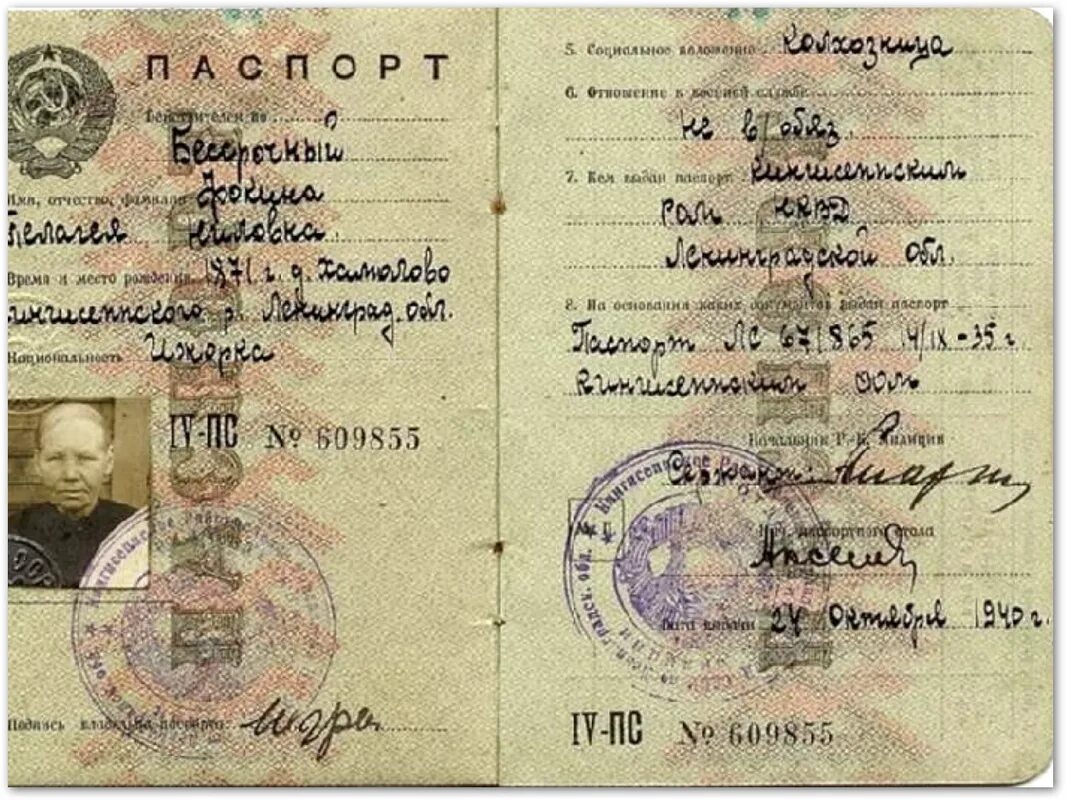 ПАСПОРТ
Действителен по
Бессрочный
Фокина
Имя, отчество, фамилия
Пелагея Ниловна
Время и место рождения 1871 г. д. Хамолово
Кингисеппского р. Ленинград. обл.
Национальность Ижорка
IV-ПС № 609855
Подпись владельца паспорта:
5. Социальное положение Колхозница
6. Отношение к военной службе
не в/обяз.
7. Кем выдан паспорт Кингисеппским
РОМ НКВД
Ленинградской обл.
8. На основании каких документов выдан паспорт
Паспорт ЛС 671865 14/IX-35 г.
Кингисеппским РОМ
Начальник Р.-К. Милиции
Сержант
М. П.
Нач. паспортного стола
Дата выдачи 24 Октября 1940 г.
IV-ПС № 609855